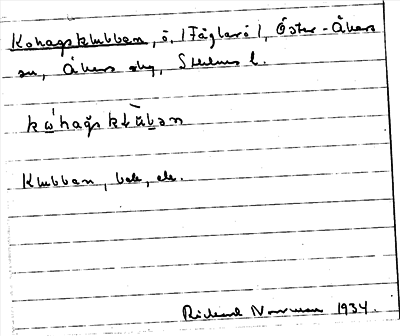 Kohagsklubben, ö, (Fåglarö), Öster-Åkers
sn, Åkers skg, Sthlms l.
kώhaǧs klŭ̀bən
Klubban, beb, ek.
Rickard Norrman 1934.